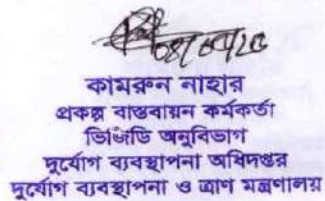 কামরুন নাহার
প্রকল্প বাস্তবায়ন কর্মকর্তা
ভিজিডি অনুবিভাগ
দুর্যোগ ব্যবস্থাপনা অধিদপ্তর
দুর্যোগ ব্যবস্থাপনা ও ত্রাণ মন্ত্রণালয়